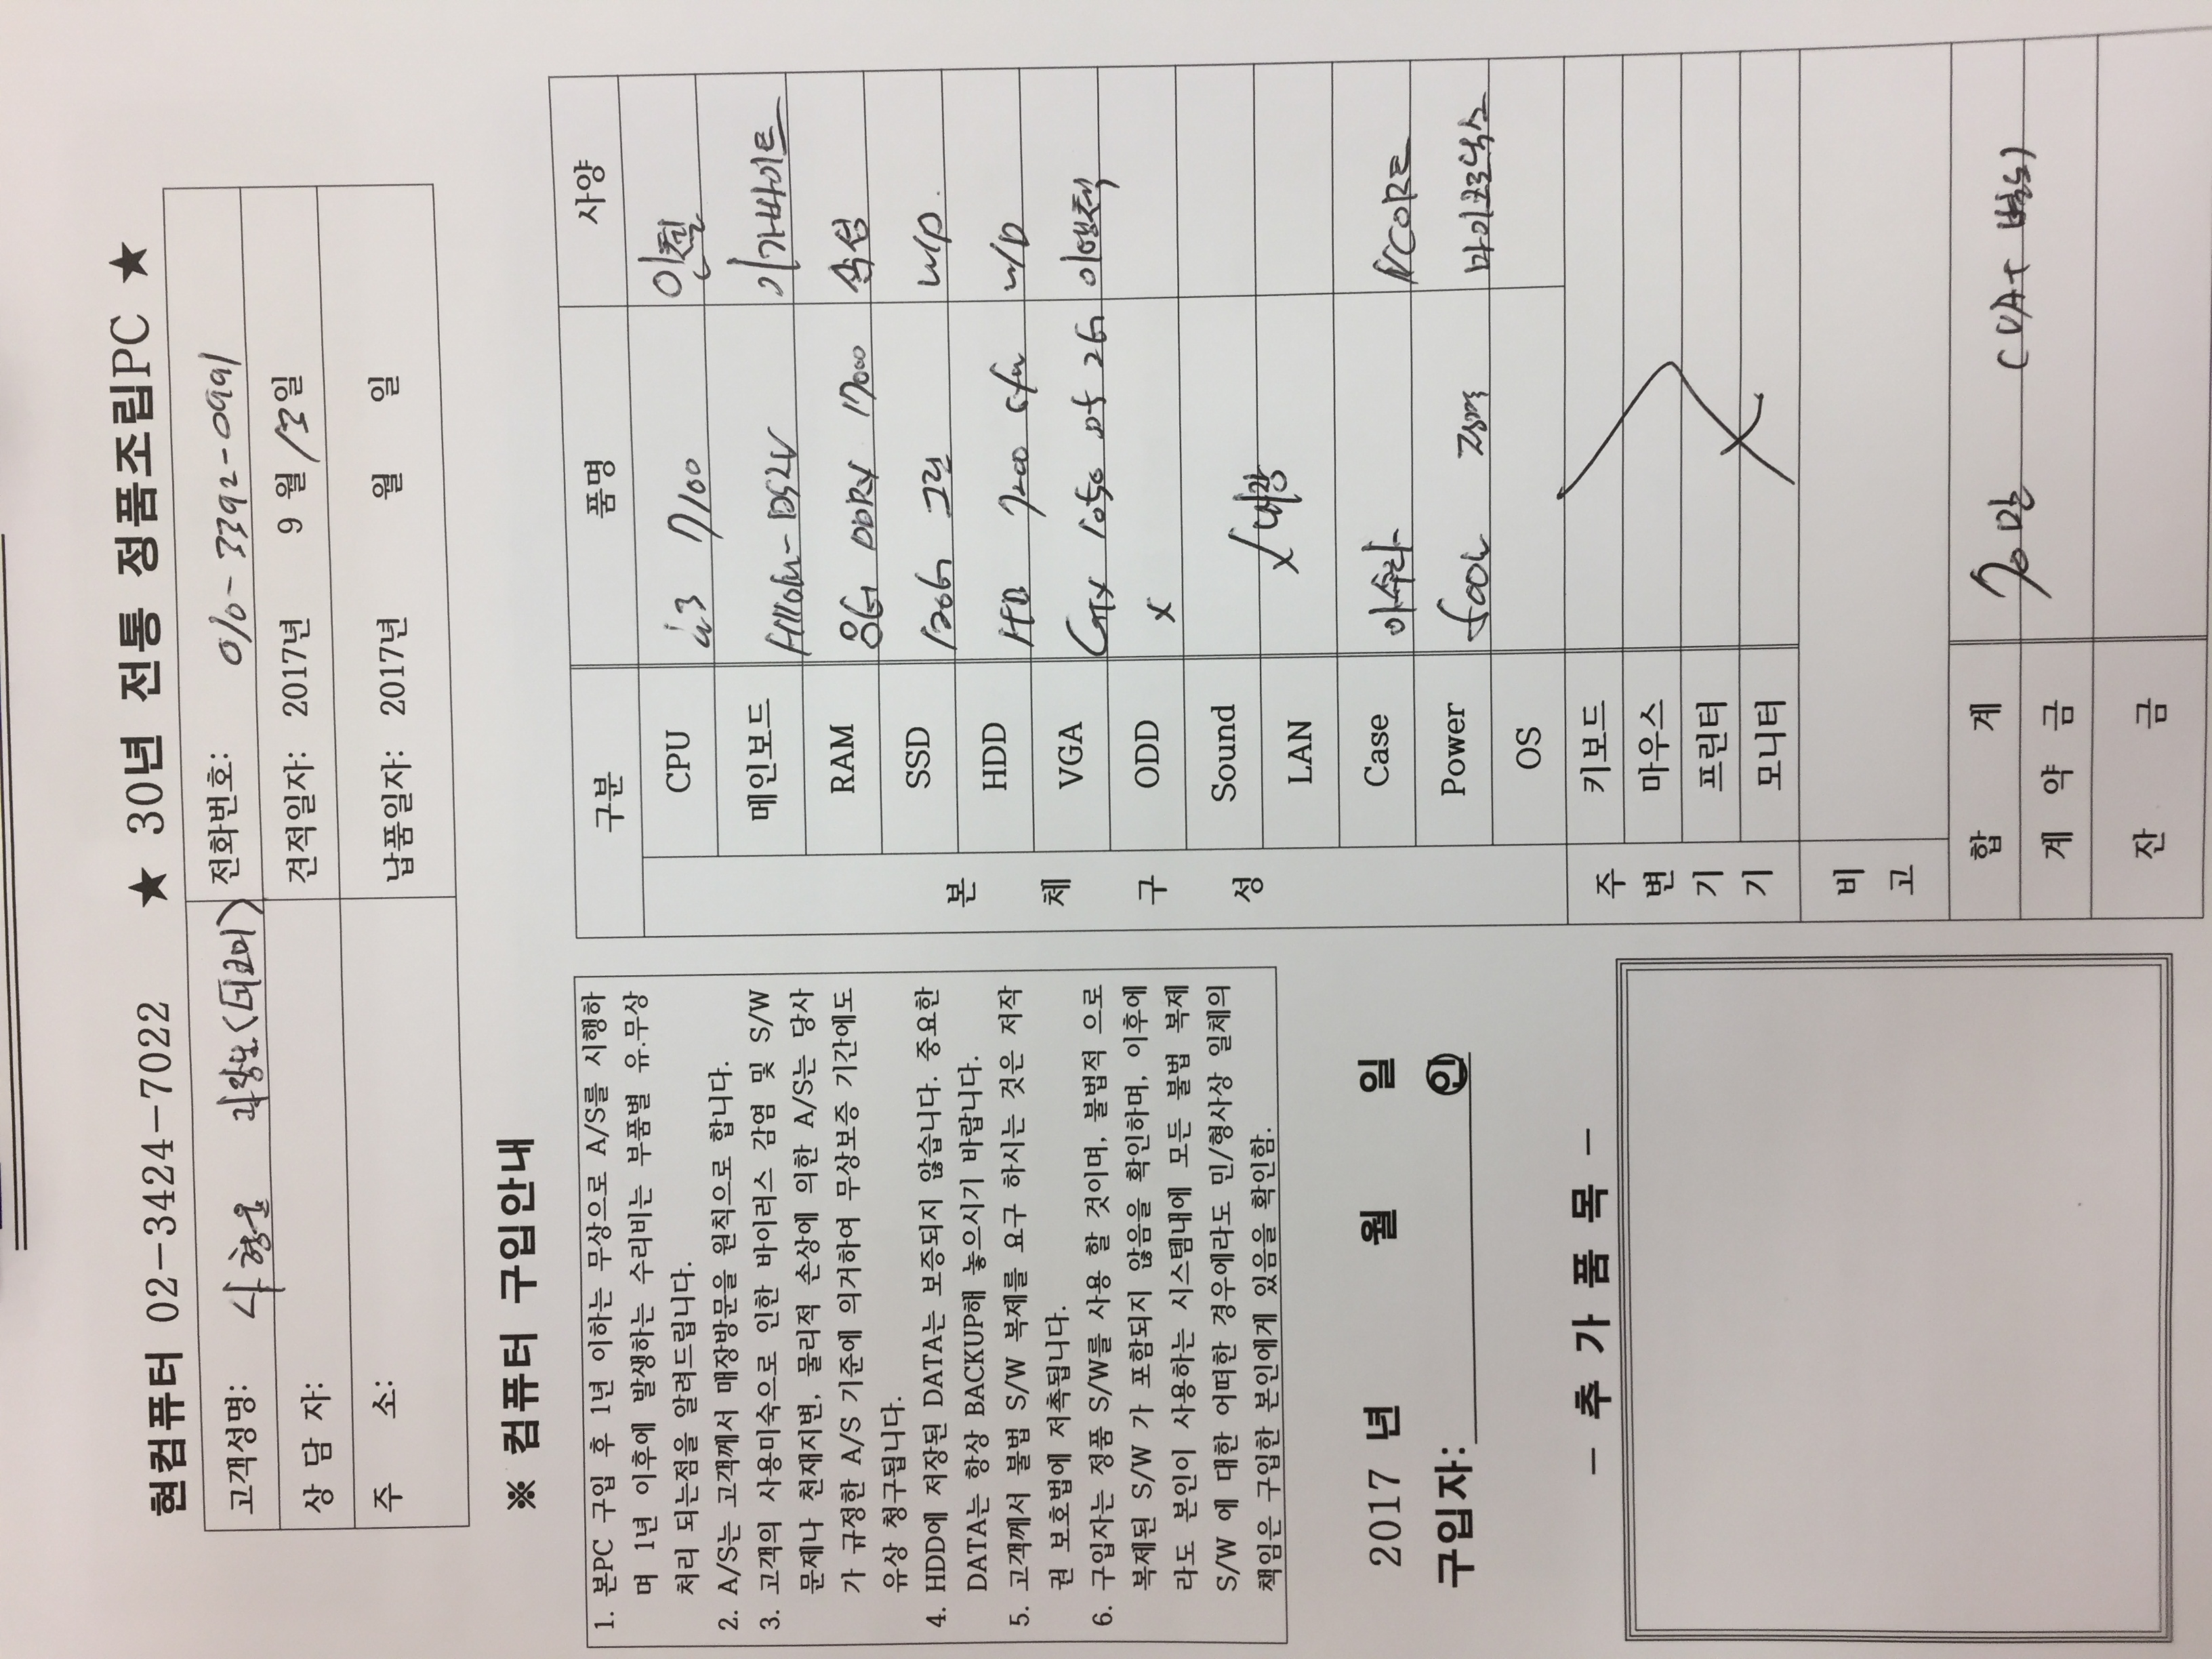 현컴퓨터 02-3424-7022 ★ 30년 전통 정품조립PC ★
고객성명: 전화번호: 010-3392-0991
상 담 자: 견적일자: 2017년 9 월 13일
주 소: 납품일자: 2017년 월 일
※ 컴퓨터 구입안내
1. 본PC 구입 후 1년 이하는 무상으로 A/S를 시행하
며 1년 이후에 발생하는 수리비는 부품별 유.무상
처리 되는점을 알려드립니다.
2. A/S는 고객께서 매장방문을 원칙으로 합니다.
3. 고객의 사용미숙으로 인한 바이러스 감염 및 S/W
문제나 천재지변, 물리적 손상에 의한 A/S는 당사
가 규정한 A/S 기준에 의거하여 무상보증 기간에도
유상 청구됩니다.
4. HDD에 저장된 DATA는 보증되지 않습니다. 중요한
DATA는 항상 BACKUP해 놓으시기 바랍니다.
5. 고객께서 불법 S/W 복제를 요구 하시는 것은 저작
권 보호법에 저촉됩니다.
6. 구입자는 정품 S/W를 사용 할 것이며, 불법적 으로
복제된 S/W 가 포함되지 않음을 확인하며, 이후에
라도 본인이 사용하는 시스템내에 모든 불법 복제
S/W 에 대한 어떠한 경우에라도 민/형사상 일체의
책임은 구입한 본인에게 있음을 확인함.
2017 년 월 일
구입자: 인
- 추 가 품 목 -
구분 품명 사양
본 체 구 성
CPU i3 7100 인텔
메인보드 DS2V 기가바이트
RAM 8G DDR4 17000 삼성
SSD 120G 그린 W/D
HDD 7200 W/D
VGA GTX 1050 D5 2G 이엠텍
ODD X
Sound
LAN 내장
Case 아수라 NCORE
Power 500W 정격 마이크로닉스
OS
주 변 기 기
키보드
마우스
프린터
모니터
비 고
합 계 70만 (VAT 별도)
계 약 금
잔 금